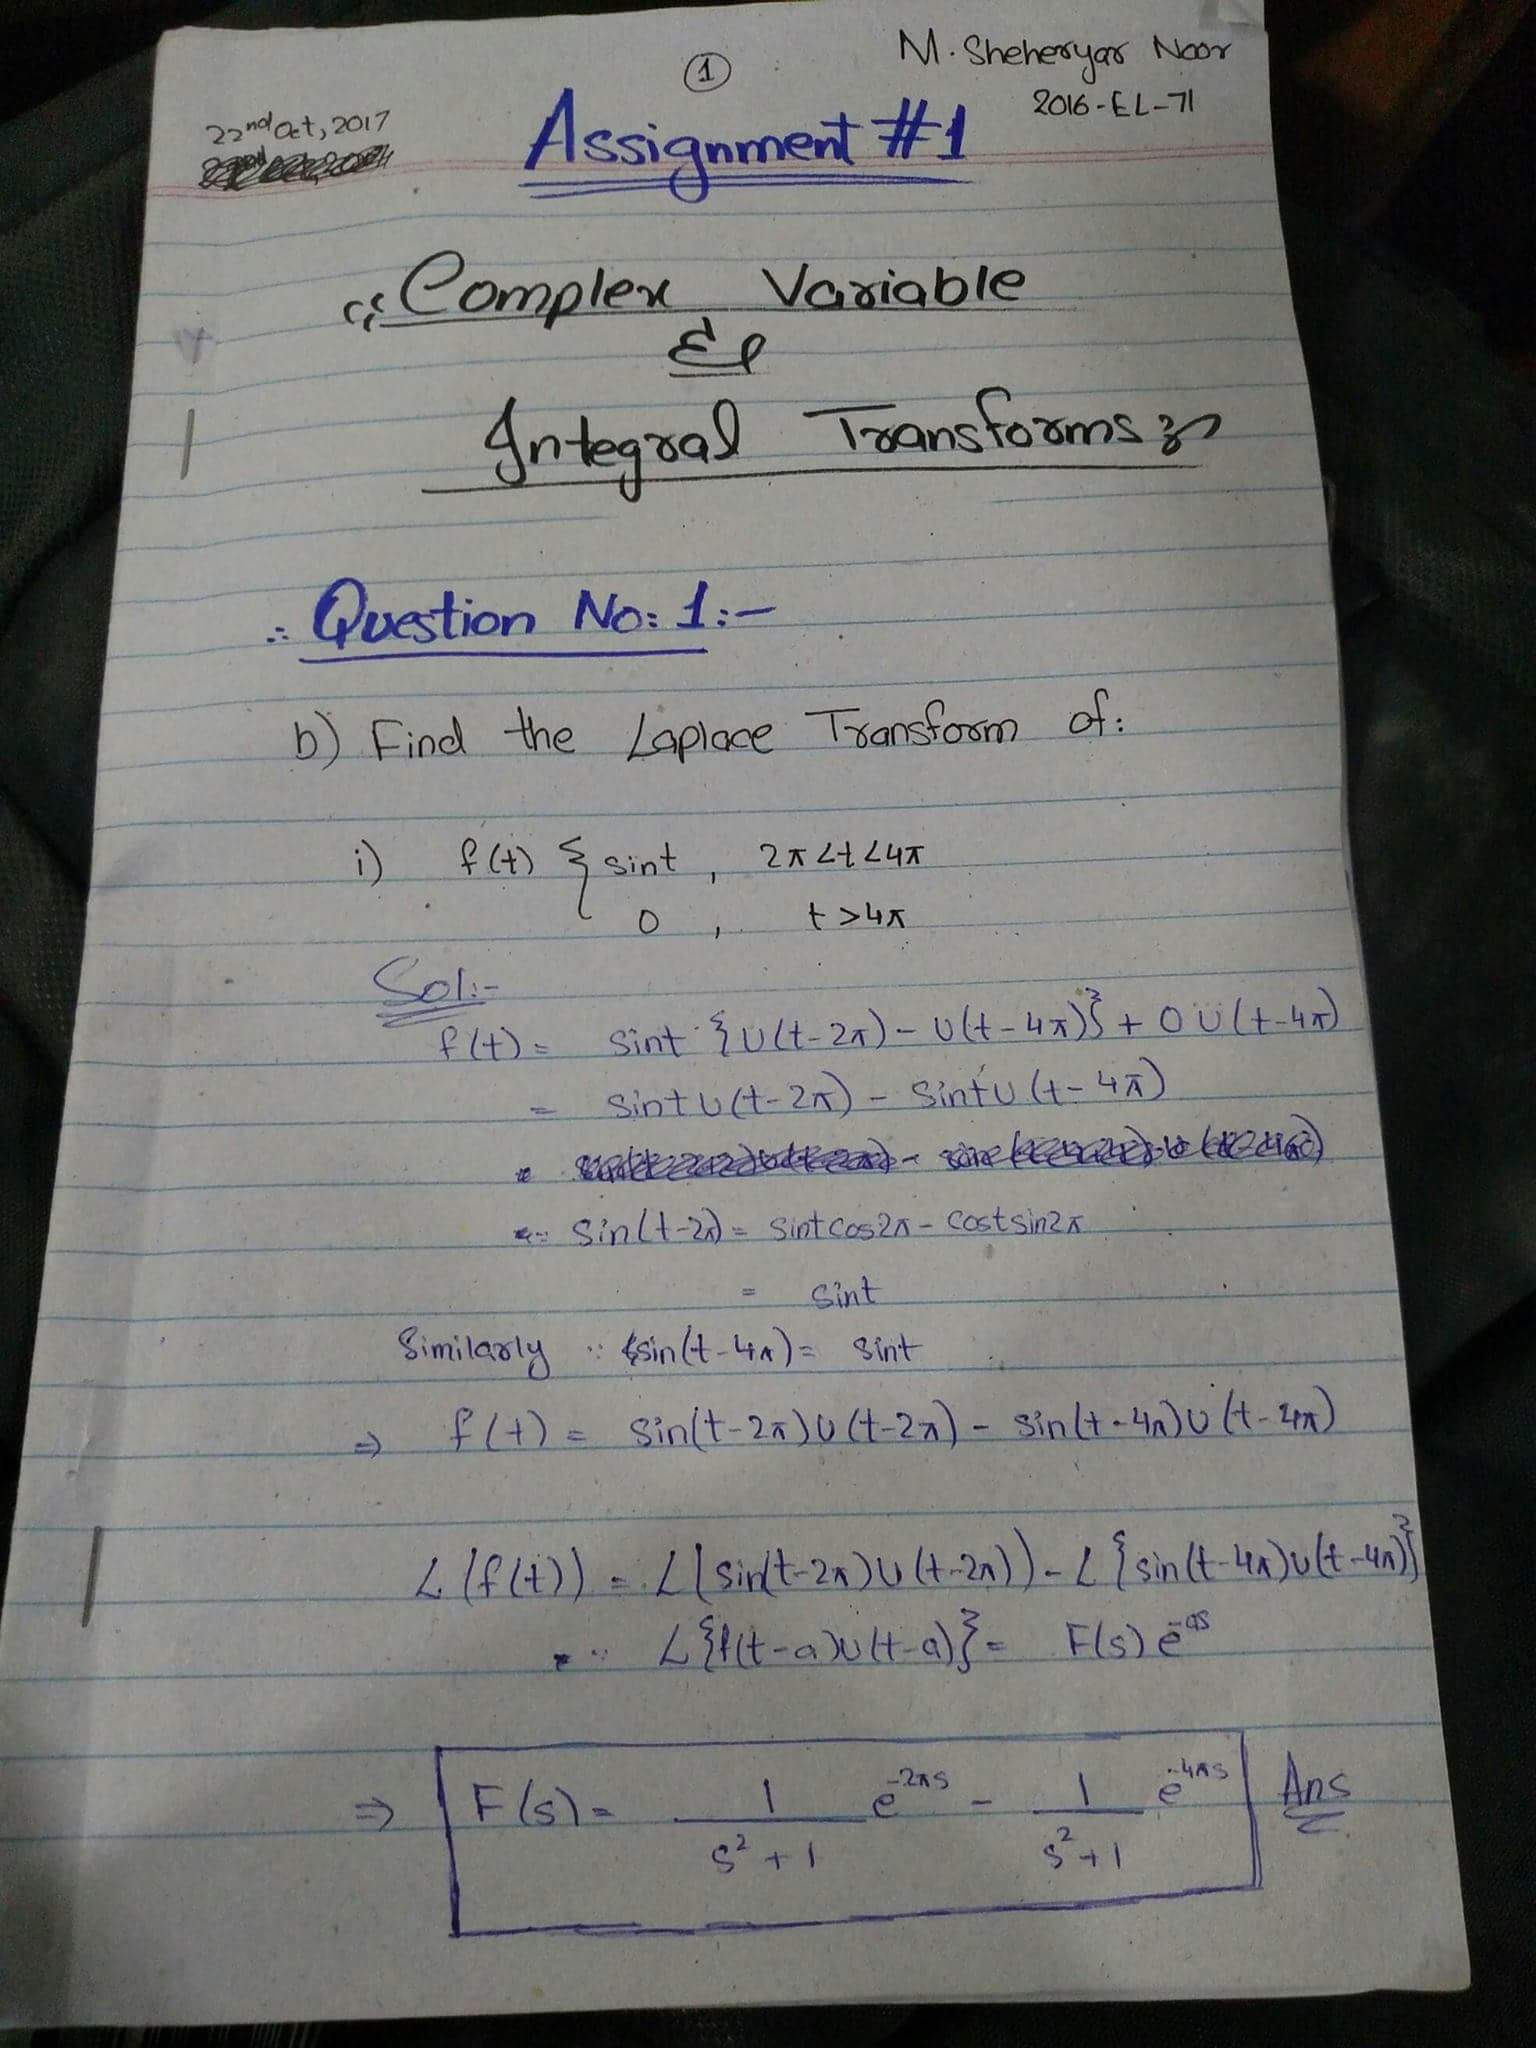 ①
M. Sheheryar Noor
2016-EL-71
22nd Oct, 2017
Assignment #1
"Complex Variable
&
Integral Transforms"
∴ Question No: 1:-
b) Find the Laplace Transform of:
i) f(t) { sint , 2π<t<4π
0 , t>4π
Sol:-
f(t) = sint {U(t-2π) - U(t-4π)} + 0 U(t-4π)
= sint U(t-2π) - sint U(t-4π)
∵ sin(t-2π) = sint cos2π - cost sin2π
= sint
Similarly ∵ sin(t-4π) = sint
⇒ f(t) = sin(t-2π)U(t-2π) - sin(t-4π)U(t-4π)
L(f(t)) = L(sin(t-2π)U(t-2π)) - L{sin(t-4π)U(t-4π)}
∵ L{f(t-a)U(t-a)} = F(s) e^-as
⇒ F(s) = 1/(s²+1) e^-2πs - 1/(s²+1) e^-4πs Ans